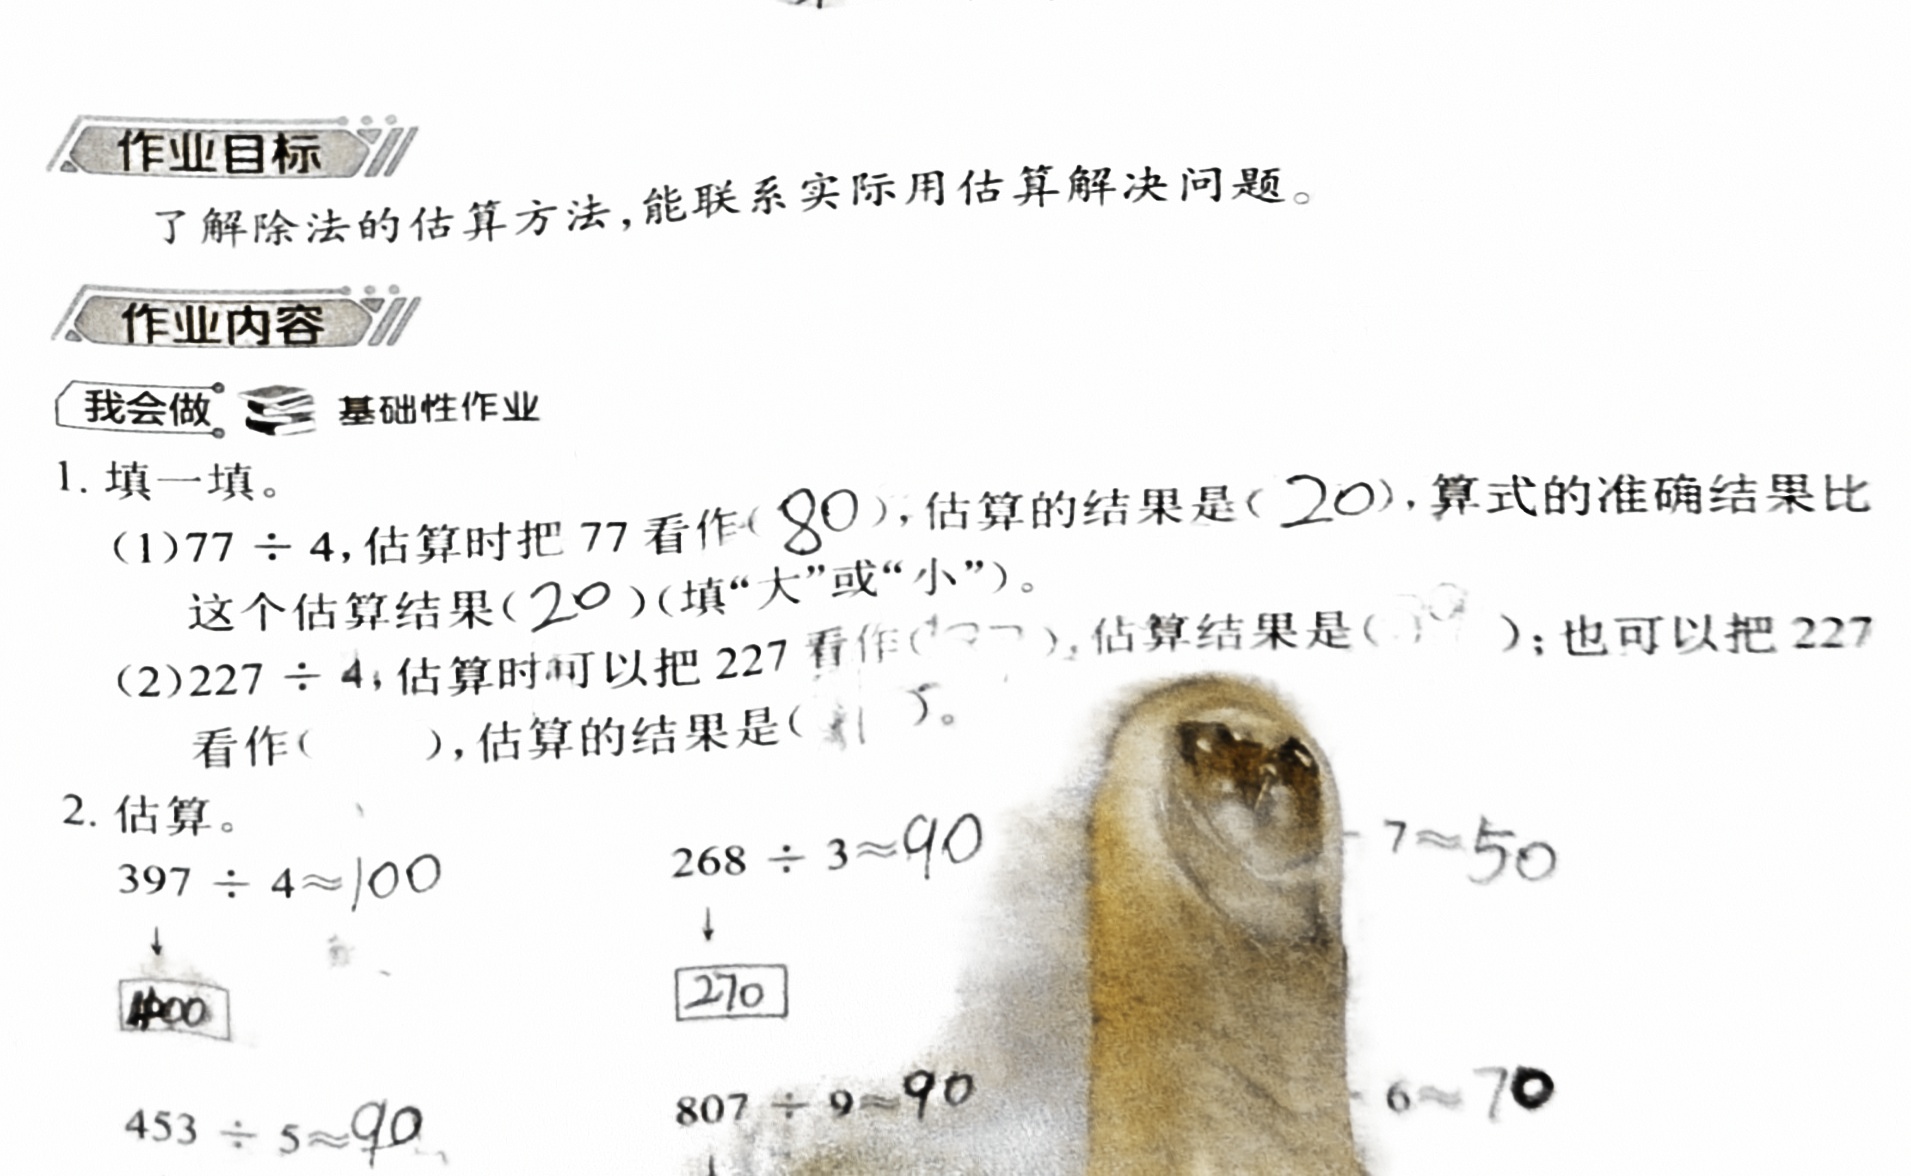 作业目标
了解除法的估算方法,能联系实际用估算解决问题。
作业内容
我会做 基础性作业
1. 填一填。
(1)77 ÷ 4,估算时把 77 看作( 80 ),估算的结果是( 20 ),算式的准确结果比
这个估算结果( 20 )(填“大”或“小”)。
(2)227 ÷ 4,估算时可以把 227 看作( ),估算结果是( );也可以把 227
看作( ),估算的结果是( )。
2. 估算。
397 ÷ 4≈100 268 ÷ 3≈90 7≈50
400 270
453 ÷ 5≈90 807 ÷ 9≈90 6≈70